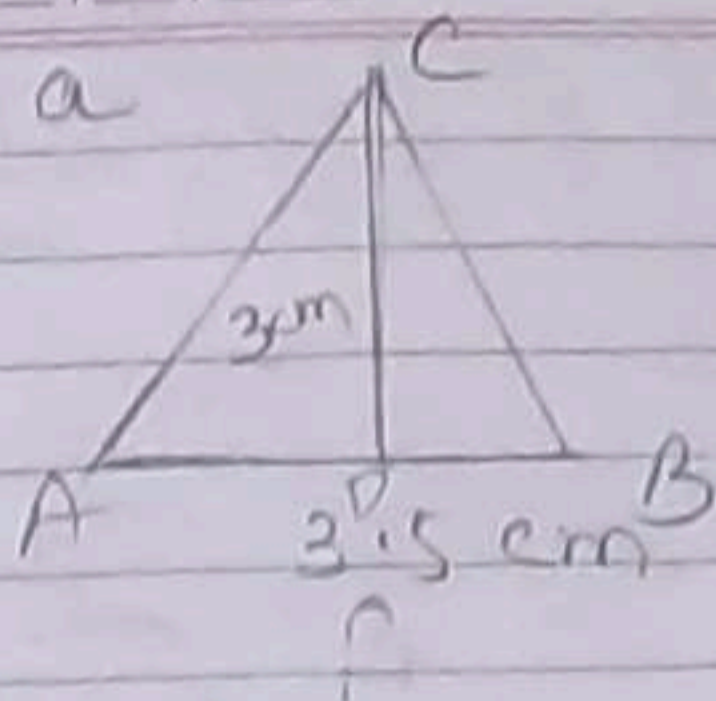 a
C
3cm
A
D
B
3.5 cm